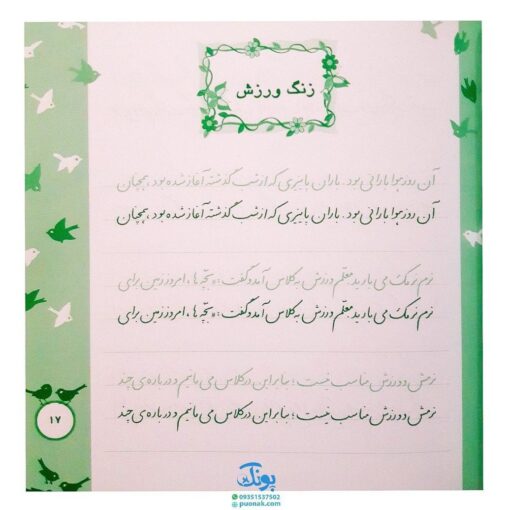 زنگ ورزش
آن روز هوا بارانی بود. باران پاییزی که از شب گذشته آغاز شده بود، همچنان
آن روز هوا بارانی بود. باران پاییزی که از شب گذشته آغاز شده بود، همچنان
نرم نرمک می بارید معلّم ورزش به کلاس آمد و گفت: «بچّه ها، امروز زمین برای
نرم نرمک می بارید معلّم ورزش به کلاس آمد و گفت: «بچّه ها، امروز زمین برای
نرمش و ورزش مناسب نیست؛ بنابراین در کلاس می مانیم و درباره ی چند
نرمش و ورزش مناسب نیست؛ بنابراین در کلاس می مانیم و درباره ی چند
۱۷
پونک
09351537502
puonak.com